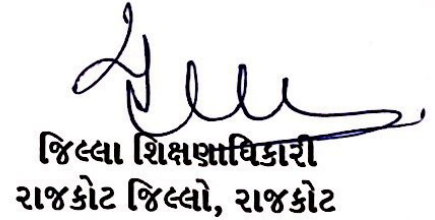 જિલ્લા શિક્ષણાધિકારી
રાજકોટ જિલ્લો, રાજકોટ